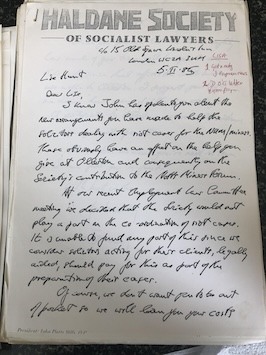 HALDANE SOCIETY
OF SOCIALIST LAWYERS
c/o 15 Old Square Lincoln's Inn
London WC2A
5.II.85
LISA
Lisa Hunt
Dear Lisa,
I know John has spoken to you about the
new arrangements you have made to help the
solicitors dealing with riot cases for the NUM/miners.
These obviously have an effect on the help you
give at Ollerton and consequently on the
Society's contribution to the Notts Miners Forum.
At our recent Employment Law Committee
meeting we decided that the Society would not
play a part in the co-ordination of riot cases.
It is unable to fund any part of this since we
consider solicitors acting for their clients, legally
aided, should pay for this as part of the
preparation of their cases.
Of course, we don't want you to be out
of pocket so we will loan you your costs
President: John Platts-Mills